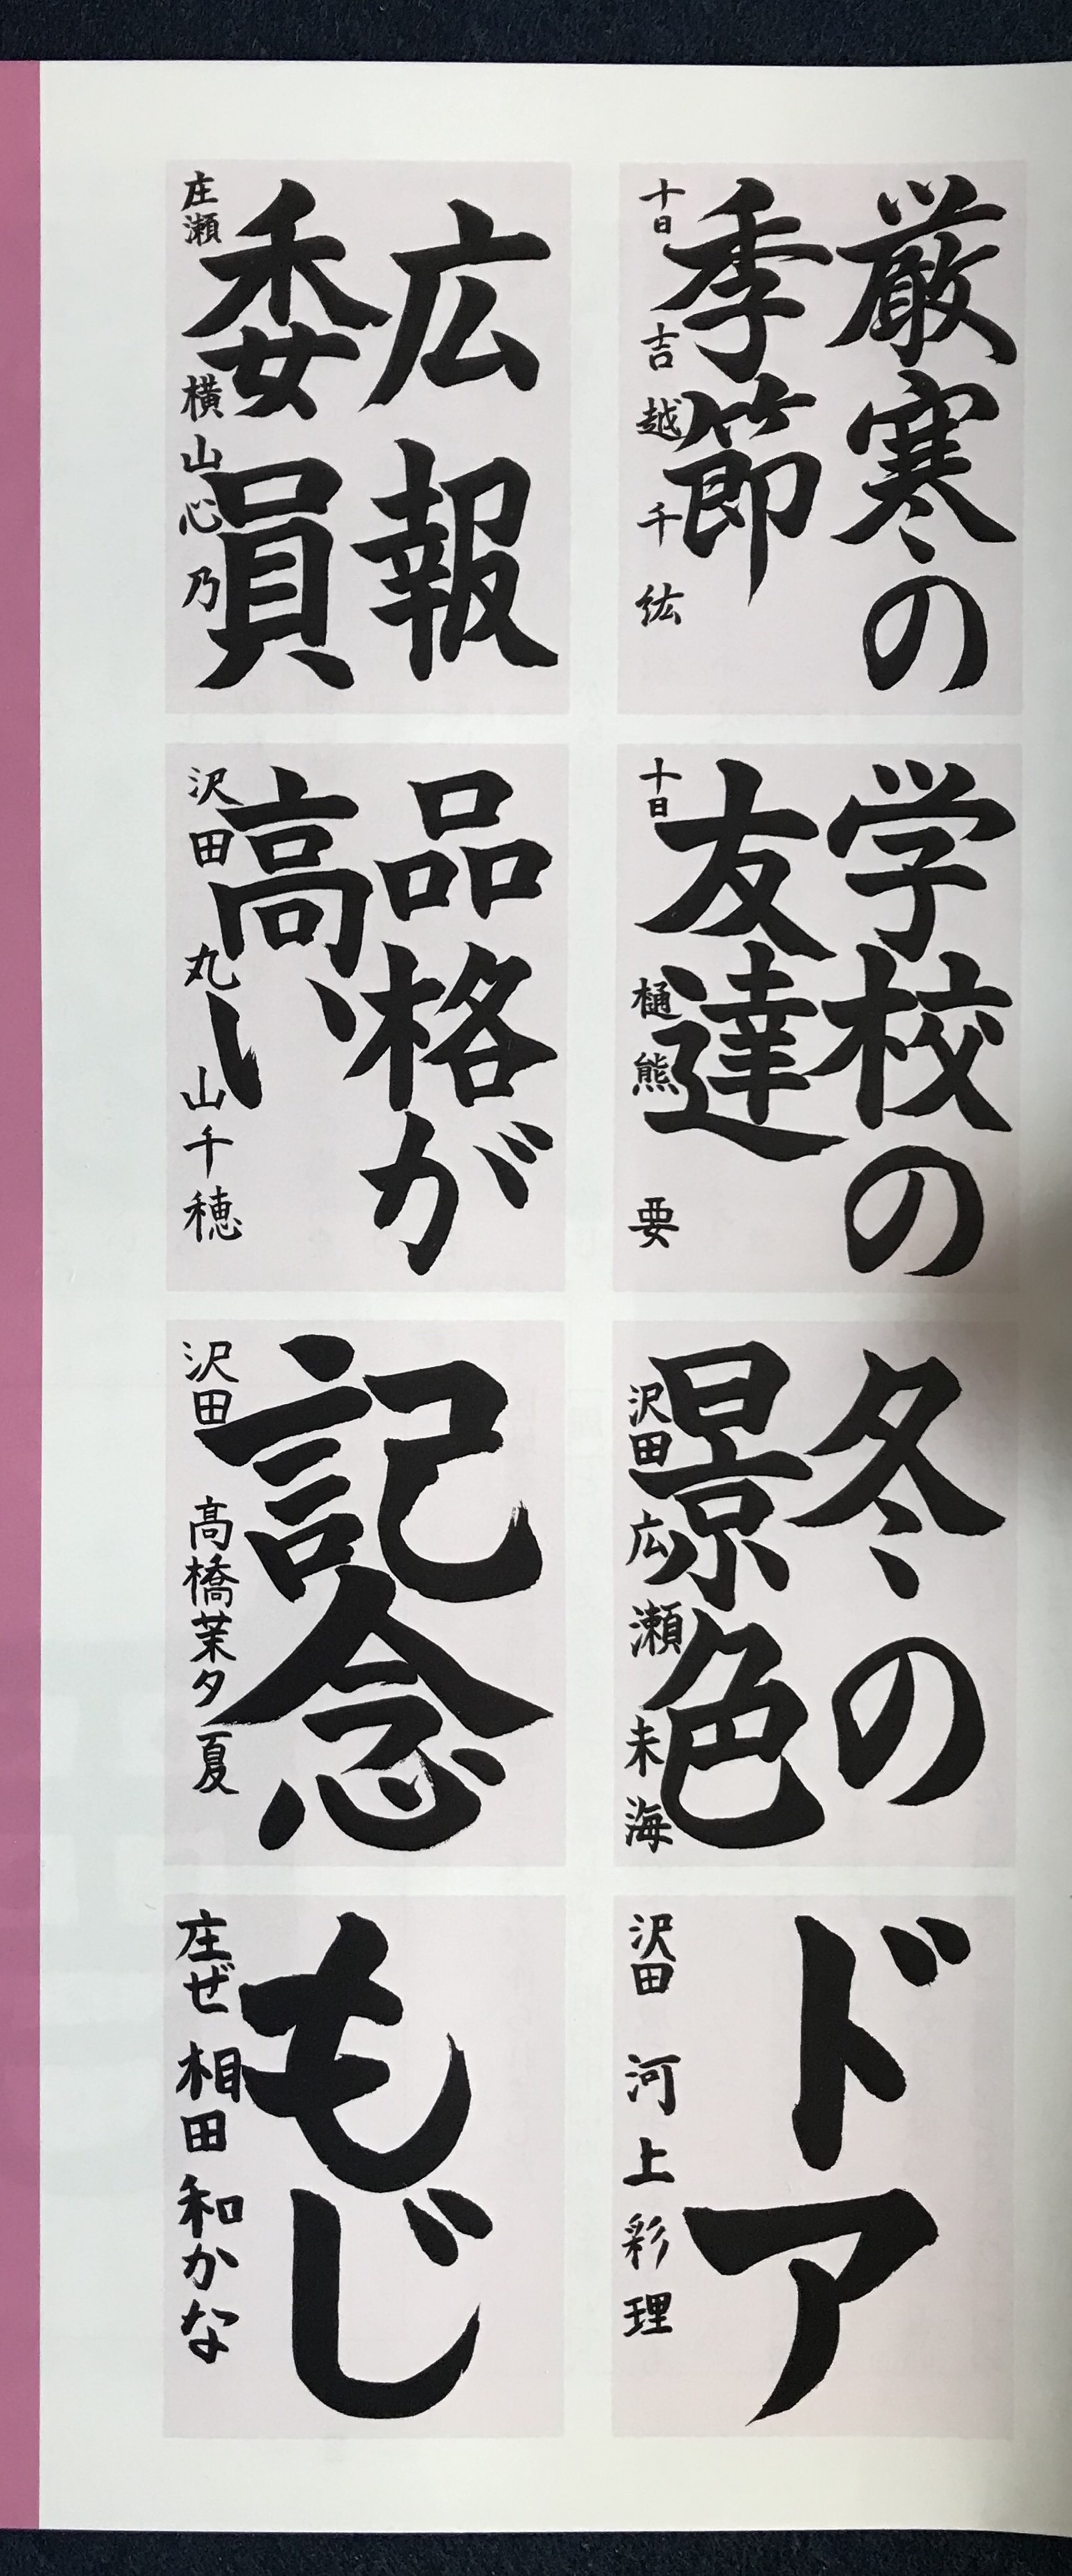 厳寒の
季節
十日 吉越千紘
学校の
友達
十日 樋熊 要
冬の
景色
沢田 広瀬未海
ドア
沢田 河上彩理
広報
委員
庄瀬 横山心乃
品格が
高い
沢田 丸山千穂
記念
沢田 高橋茉夕夏
もじ
庄ぜ 相田和かな